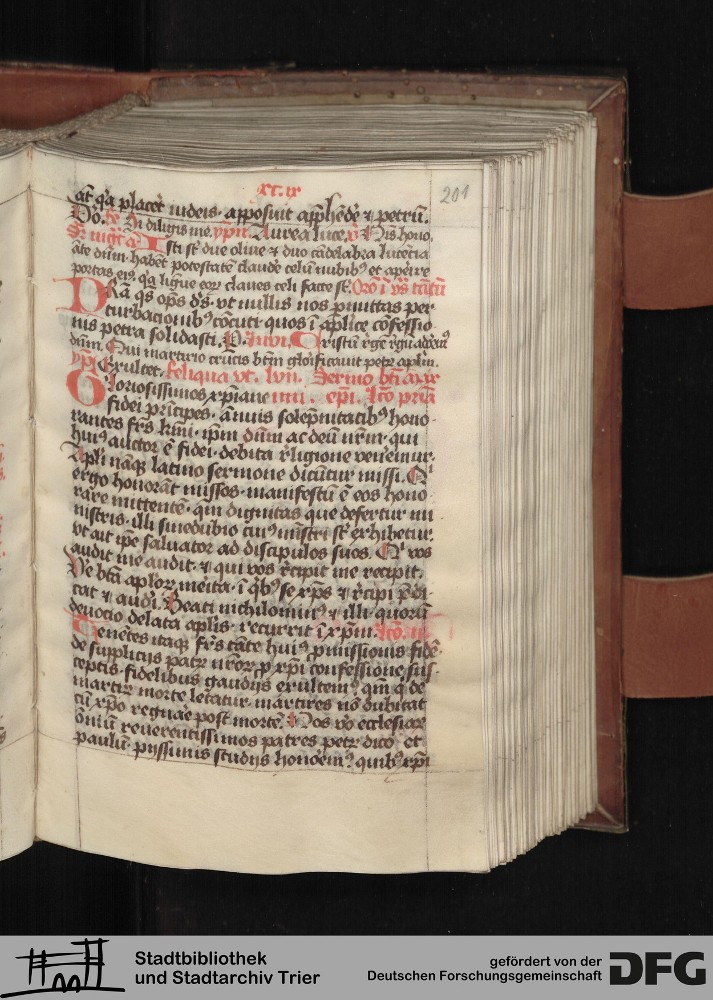 xc.ix
201
at qa placet iudeis. apposuit apphēdē ⁊ petrū.
Dō. Si diligis me. ypn̄. Aurea luce. Nis hono.
Isti st̄ due oliue ⁊ duo cādelabra lucētia
āte dūm. habēt potestatē claudē celū nubibꝰ et aperire
portas eiꝰ. qa ligue eoꝝ claues celi facte st̄.
Da qs ops ds. vt nullis nos pmittas per
turbacionibꝰ cōcuti. quos ī aplīce cōfessio
nis petra solidasti.
dūm. Qui martirio crucis btm glorificauit petꝝ aplm.
Exultet. Reliqua vt. lvii. Sermo bti maxi
Gloriosissimos xpiane mi. epi. Lco pria
fidei prīcipes. ānuis solēpnitatibꝰ hono
rantes frs kmi. ipm dūm ac deū nrm. qui
huiꝰ auctor ē fidei. debita religione veneemur.
Apli nāqꝫ latino sermone dicūtur missi. Qi
ergo honorāt missos. manifestū ē eos hono
rare mittente. qm dignitas que defertur mi
nistris. illi sinedubio cuiꝰ mistri st̄ exhibetur.
vt ait ipe saluator ad discipulos suos. Qi vos
audit me audit. ⁊ qui vos recipit me recipit.
Ve btā aploꝝ meita. ī qbꝰ se xps ⁊ recipi pdi
cat ⁊ audi. Beati nichilominꝰ ⁊ illi. quorū
deuocio delata aplis. recurrit ī xpm. Lco. ii.
Tenētes itaqꝫ frs cāte huiꝰ pmissionis fidē.
de suppliciis patꝝ nroꝝ p xpi confessione sus
ceptis. fidelibus gaudiis exultemꝰ. qm q de
martiꝝ morte letatur. martires nō dubitat
cū xpo regnare post morte. Nos vo ecclesiaꝝ
oīniū reuerentissimos patres petꝝ dico et
paulū. piissimis studiis honoremꝰ. quibꝰ xpi
Stadtbibliothek
und Stadtarchiv Trier
gefördert von der
Deutschen Forschungsgemeinschaft
DFG